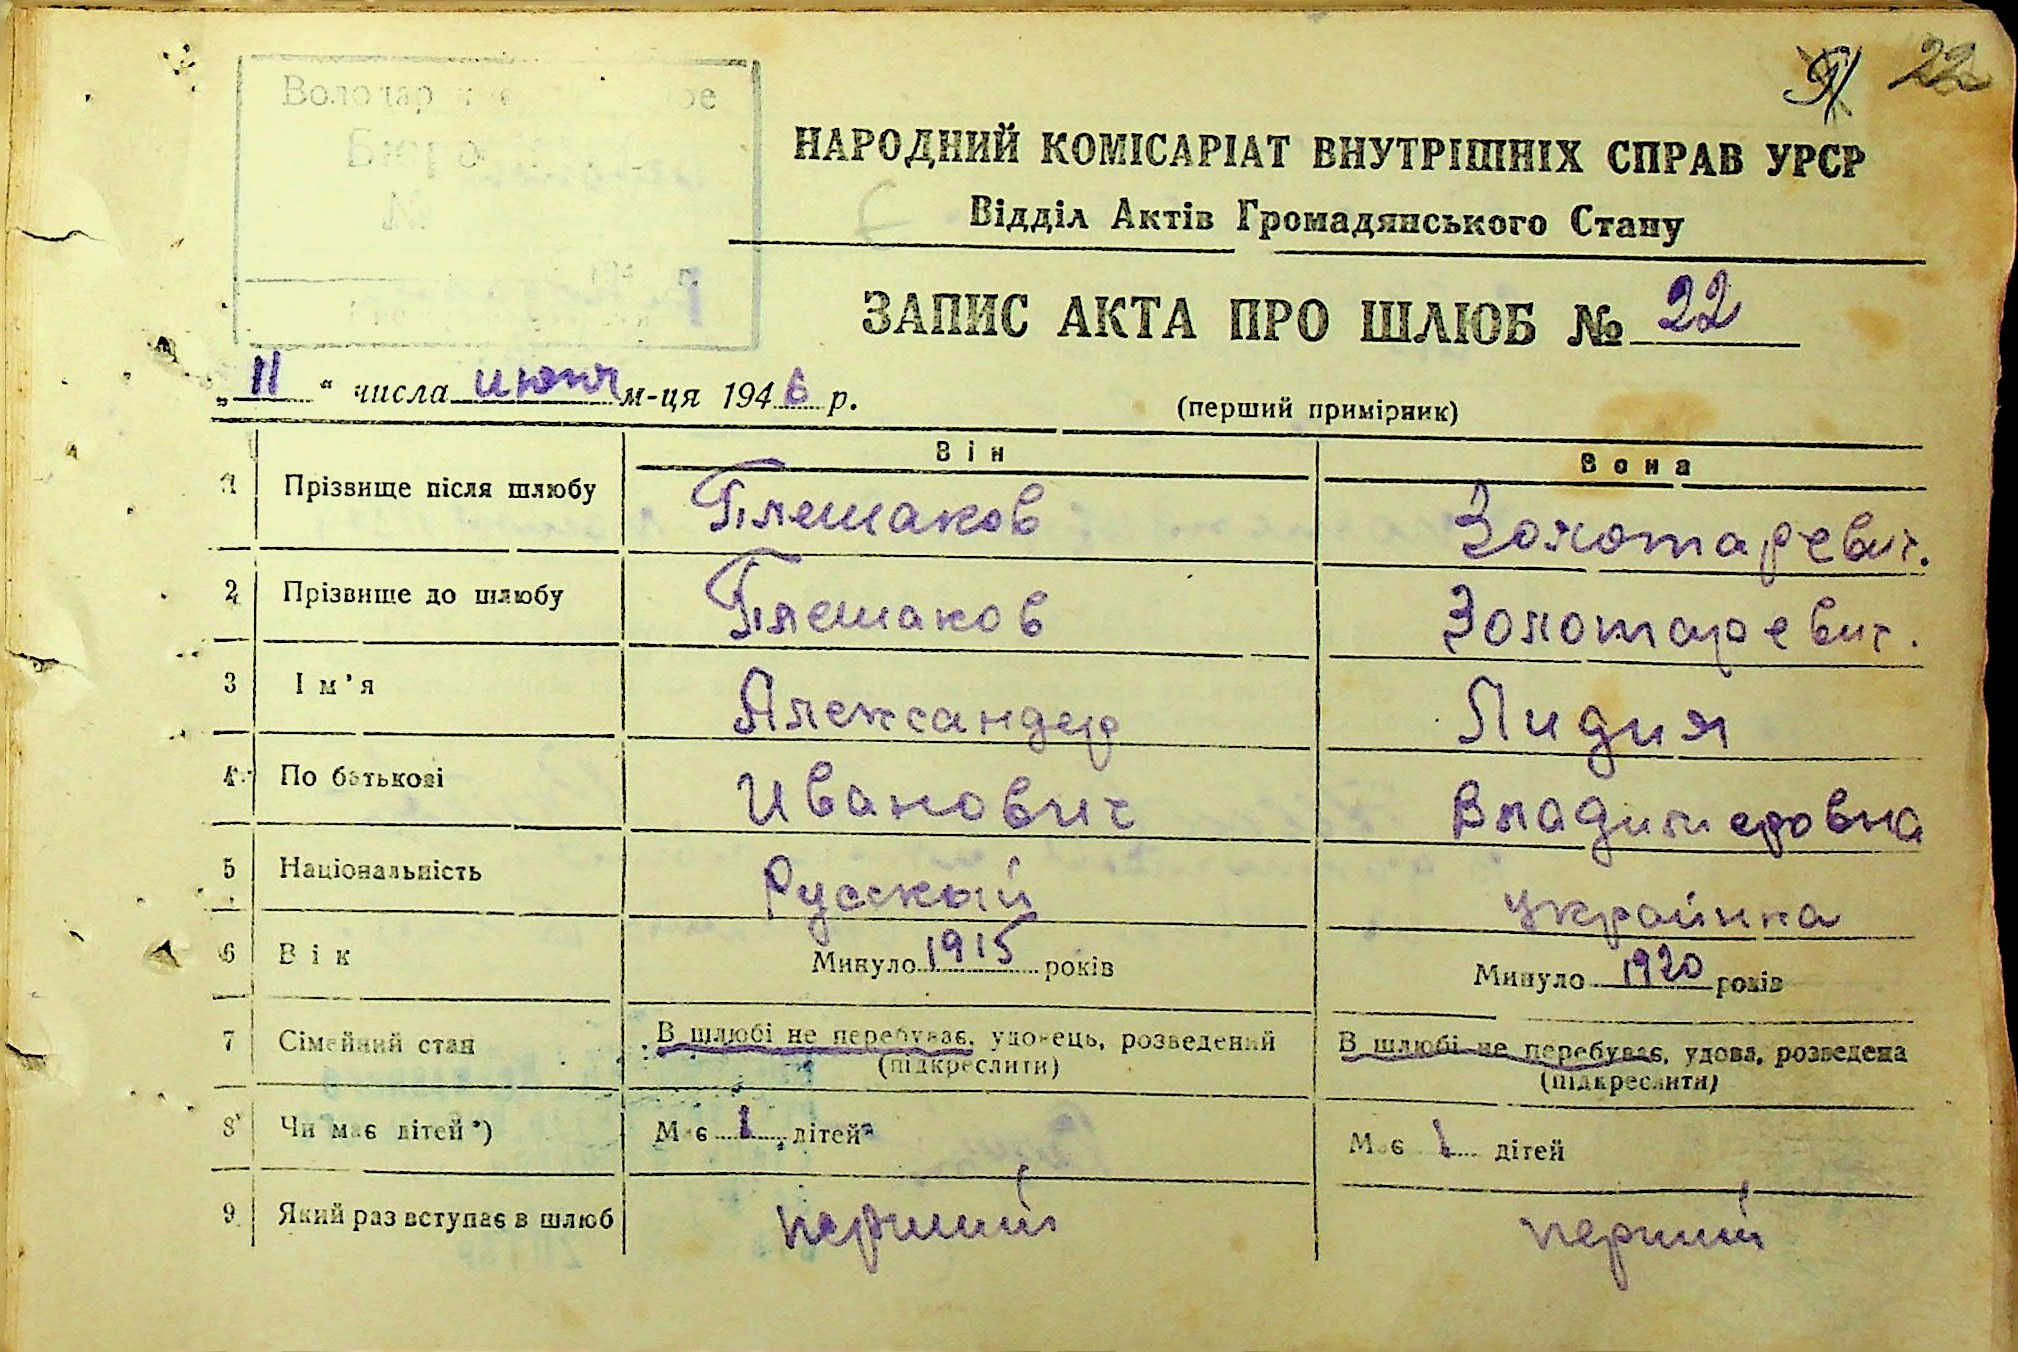 22
НАРОДНИЙ КОМІСАРІАТ ВНУТРІШНІХ СПРАВ УРСР
Відділ Актів Громадянського Стану
ЗАПИС АКТА ПРО ШЛЮБ № 22
„ 11 “ числа июня м-ця 1946 р.
(перший примірник)
Він Вона
1 Прізвище після шлюбу Плешаков Золотаревич.
2 Прізвище до шлюбу Плешаков Золотаревич.
3 Ім'я Александер Лидия
4 По батькові Иванович Владимеровна
5 Національність Русский украйнка
6 Вік Минуло 1915 років Минуло 1920 років
7 Сімейний стан В шлюбі не перебуває, удовець, розведений В шлюбі не перебуває, удова, розведена
(підкреслити) (підкреслити)
8 Чи має дітей*) Має 1 дітей Має 1 дітей
9 Який раз вступає в шлюб перший перший